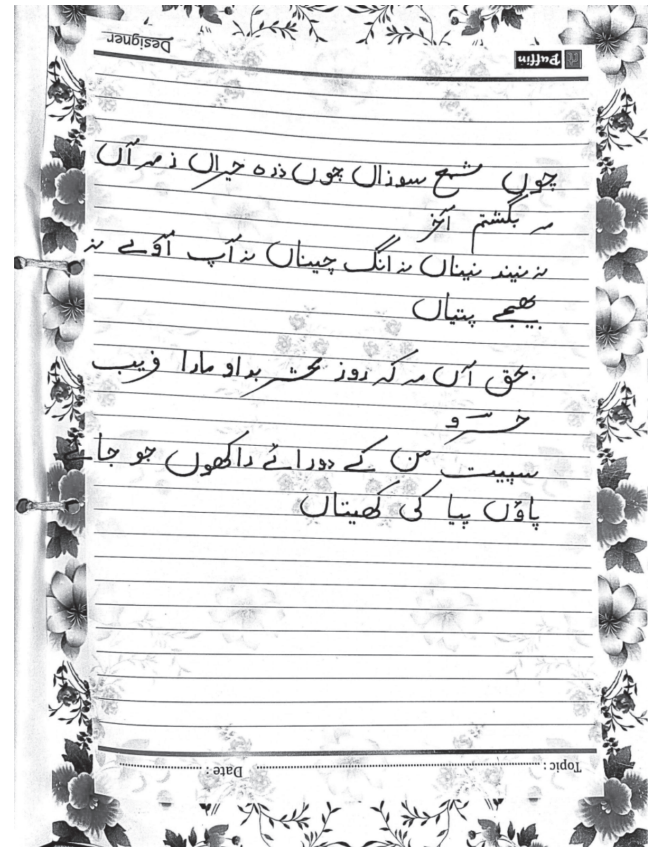 Designer
Puffin
چوں شمع سوزاں چوں ذرہ حیراں ز مہر آں
مہ بگشتم آخر
نہ نیند نیناں نہ انگ چیناں نہ آپ آوے نہ
بھیجے پتیاں
بحق آں مہ کہ روز محشر بداو مارا فریب
خسرو
سپیت من کے دورائے راکھوں جو جائے
پاؤں پیا کی کھیتاں
Topic : Date :